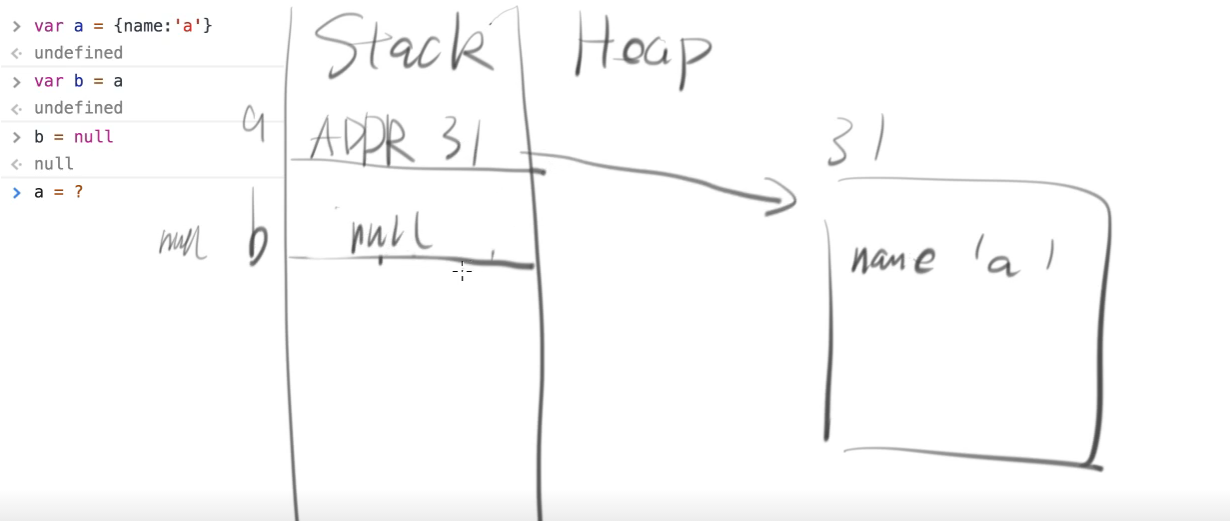 > var a = {name:'a'}
< undefined
> var b = a
< undefined
> b = null
< null
> a = ?
Stack Heap
a ADDR 31 31
null b null
name 'a'